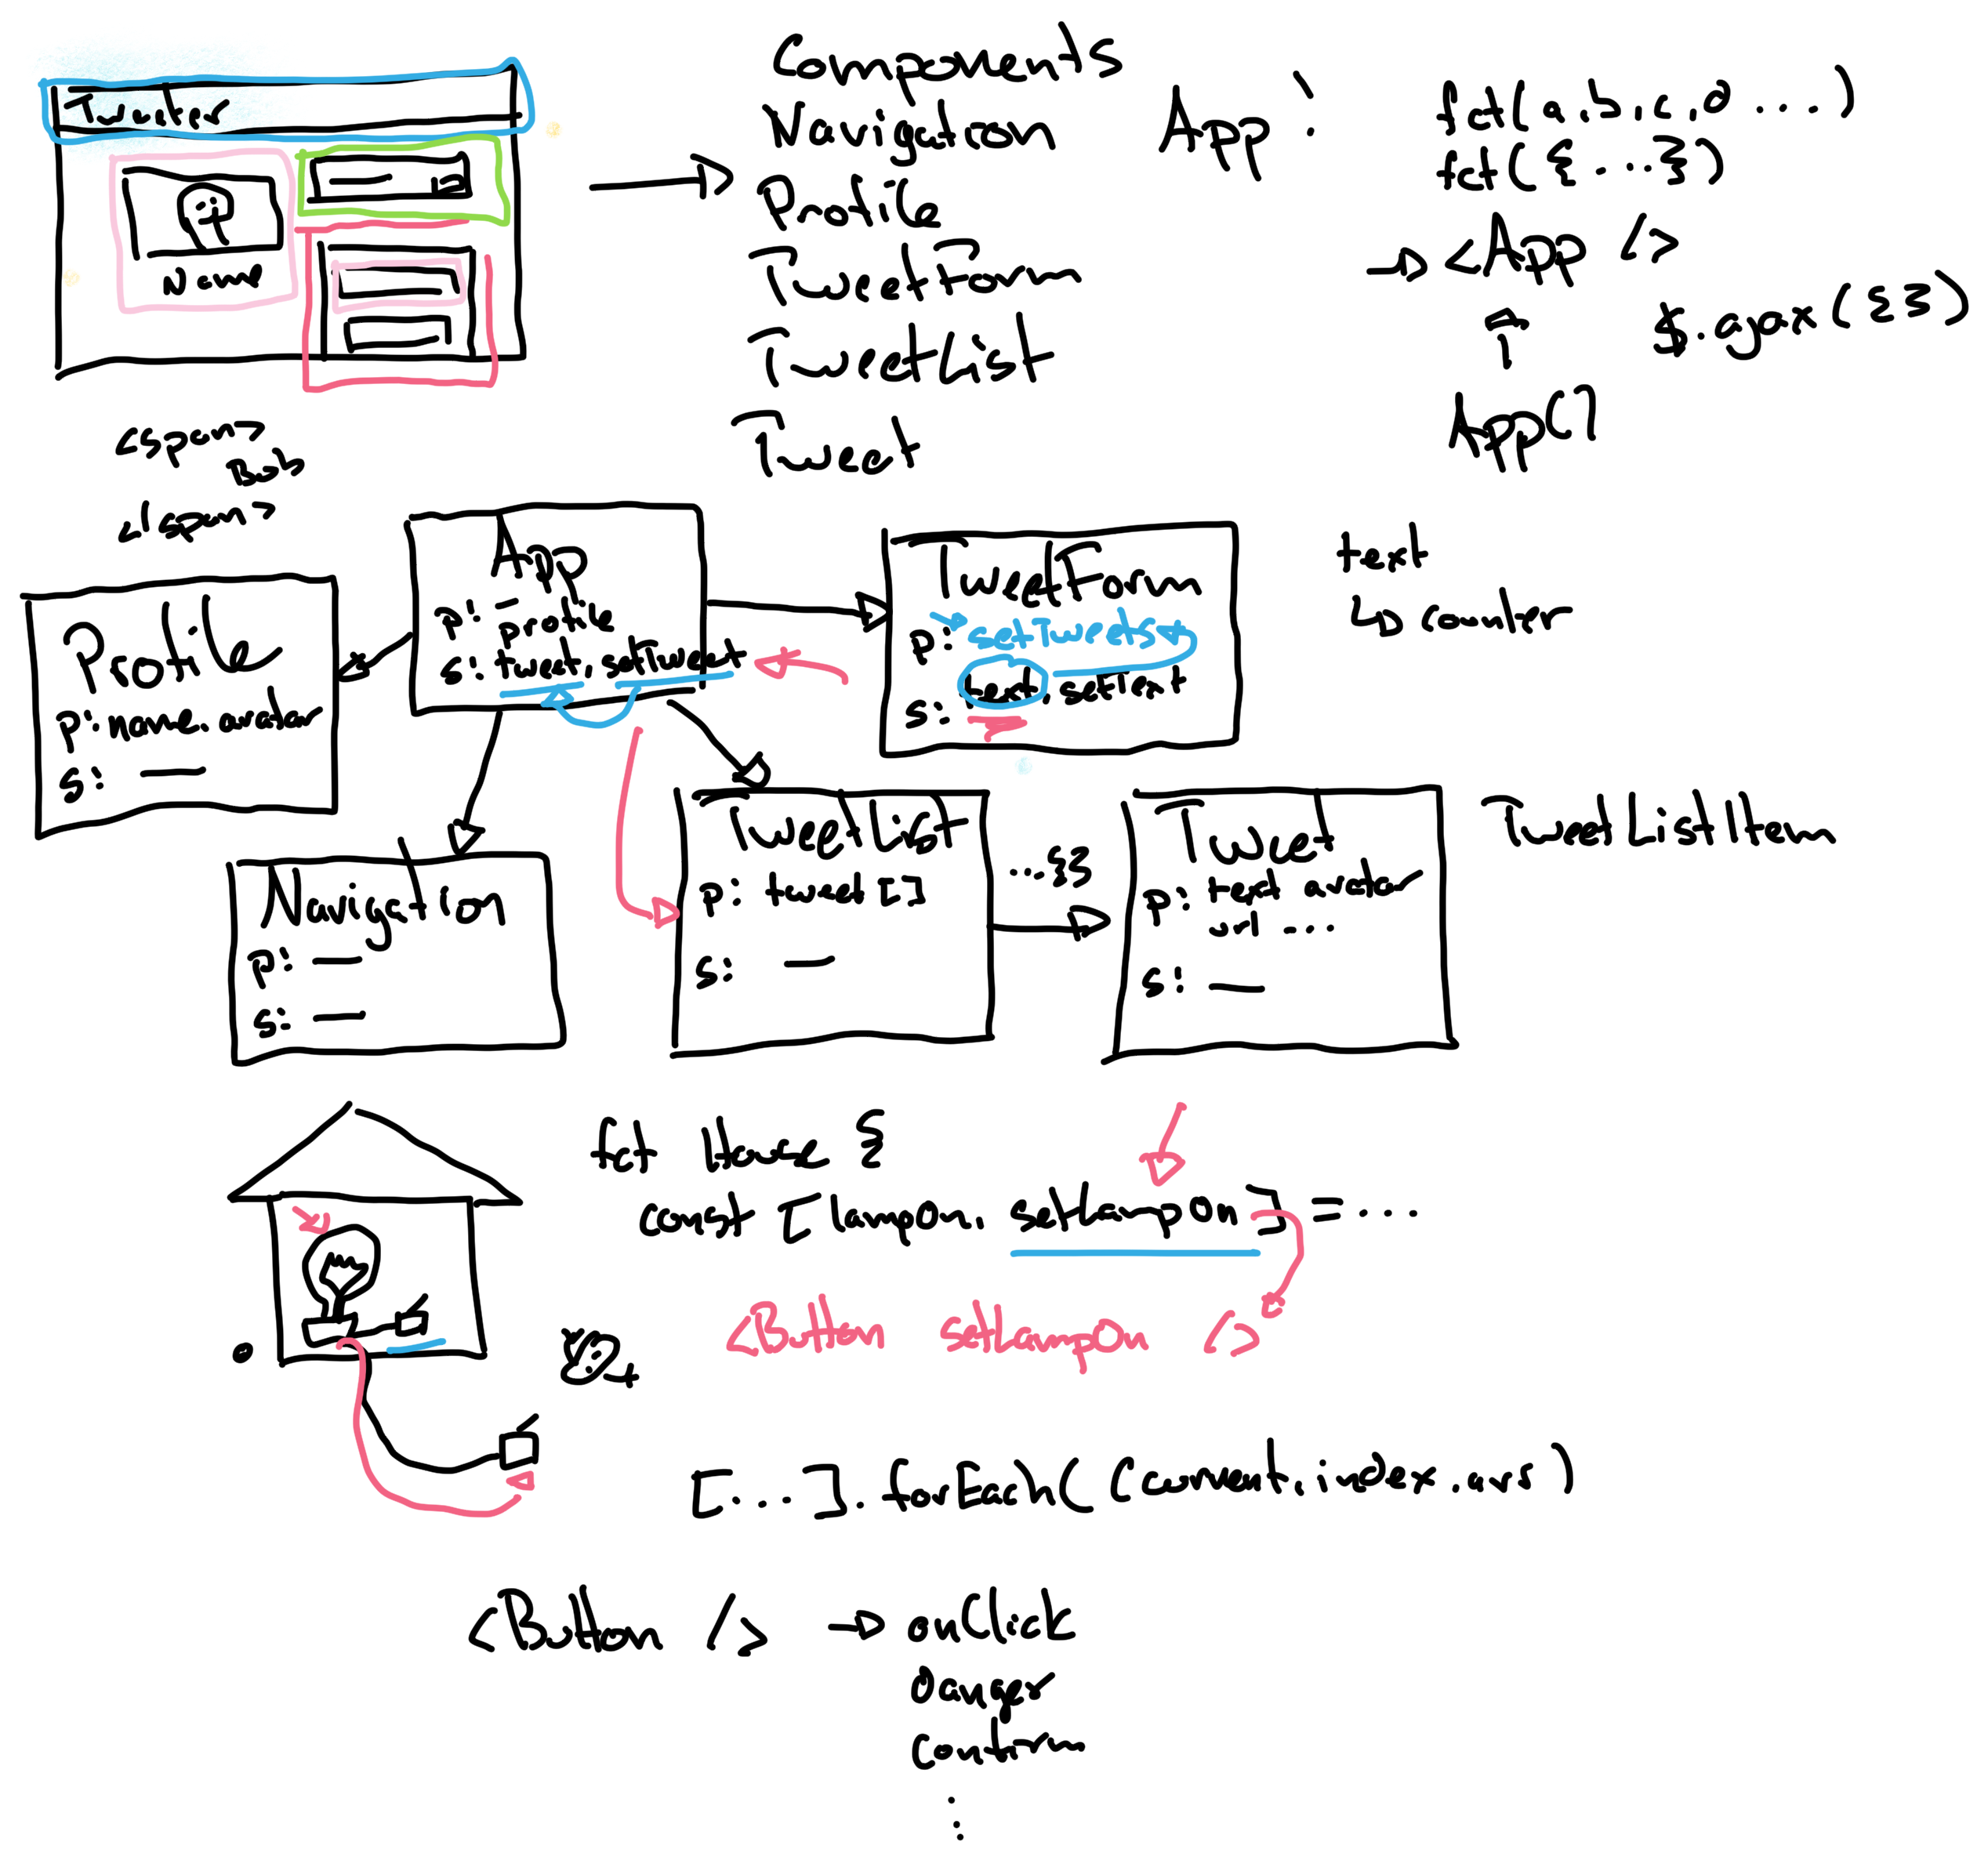 Tweeter
Name
Components
Navigation
Profile
TweetForm
TweetList
Tweet
App :
fct(a,b,c,d ....)
fct({...})
<App />
$.ajax({})
App()
<span>
Bob
</span>
App
p: —
profile
s: tweet, setTweet
TweetForm
p: setTweets
text, setText
s:
text
↳ counter
Profile
p: name, avatar
s: —
Navigation
p: —
s: —
TweetList
p: tweet[]
s: —
...{}
Tweet
p: text avatar
url ...
s: —
TweetListItem
fct House {
const [lampOn, setLampOn] = ...
<Button setLampOn />
[...].forEach((current, index, arr)
<Button /> → onClick
Danger
Confirm